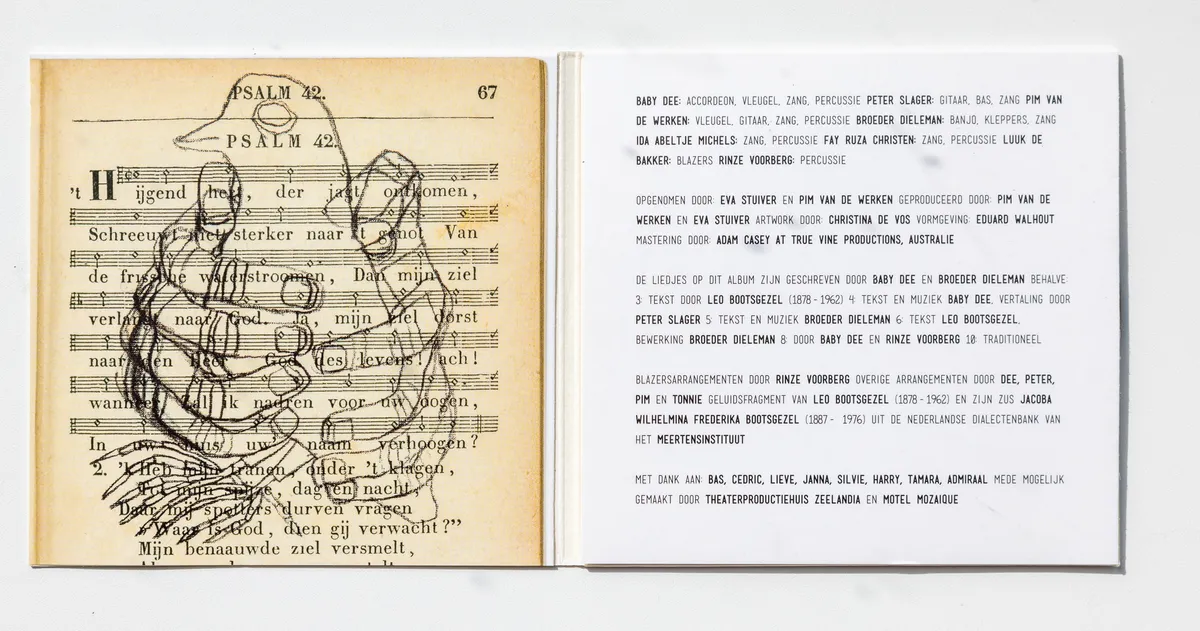 PSALM 42. 67
PSALM 42.
't Hijgend hert, der jagt ontkomen,
Schreeuwt niet sterker naar 't genot Van
de frissche waterstroomen, Dan mijn ziel
verlangt naar God. Ja, mijn ziel dorst
naar den Heer God des levens! ach!
wanneer Zal ik nadren voor uw oogen,
In uw huis uw' naam verhoogen?
2. 'k Heb mijn tranen, onder 't klagen,
Tot mijn spijze, dag en nacht,
Daar mij spotters durven vragen
„Waar is God, dien gij verwacht?”
Mijn benaauwde ziel versmelt,
BABY DEE: ACCORDEON, VLEUGEL, ZANG, PERCUSSIE PETER SLAGER: GITAAR, BAS, ZANG PIM VAN
DE WERKEN: VLEUGEL, GITAAR, ZANG, PERCUSSIE BROEDER DIELEMAN: BANJO, KLEPPERS, ZANG
IDA ABELTJE MICHELS: ZANG, PERCUSSIE FAY RUZA CHRISTEN: ZANG, PERCUSSIE LUUK DE
BAKKER: BLAZERS RINZE VOORBERG: PERCUSSIE
OPGENOMEN DOOR: EVA STUIVER EN PIM VAN DE WERKEN GEPRODUCEERD DOOR: PIM VAN DE
WERKEN EN EVA STUIVER ARTWORK DOOR: CHRISTINA DE VOS VORMGEVING: EDUARD WALHOUT
MASTERING DOOR: ADAM CASEY AT TRUE VINE PRODUCTIONS, AUSTRALIE
DE LIEDJES OP DIT ALBUM ZIJN GESCHREVEN DOOR BABY DEE EN BROEDER DIELEMAN BEHALVE:
3: TEKST DOOR LEO BOOTSGEZEL (1878 - 1962) 4: TEKST EN MUZIEK BABY DEE, VERTALING DOOR
PETER SLAGER 5: TEKST EN MUZIEK BROEDER DIELEMAN 6: TEKST LEO BOOTSGEZEL,
BEWERKING BROEDER DIELEMAN 8: DOOR BABY DEE EN RINZE VOORBERG 10: TRADITIONEEL
BLAZERSARRANGEMENTEN DOOR RINZE VOORBERG OVERIGE ARRANGEMENTEN DOOR DEE, PETER,
PIM EN TONNIE GELUIDSFRAGMENT VAN LEO BOOTSGEZEL (1878 - 1962) EN ZIJN ZUS JACOBA
WILHELMINA FREDERIKA BOOTSGEZEL (1887 - 1976) UIT DE NEDERLANDSE DIALECTENBANK VAN
HET MEERTENSINSTITUUT
MET DANK AAN: BAS, CEDRIC, LIEVE, JANNA, SILVIE, HARRY, TAMARA, ADMIRAAL MEDE MOGELIJK
GEMAAKT DOOR THEATERPRODUCTIEHUIS ZEELANDIA EN MOTEL MOZAIQUE